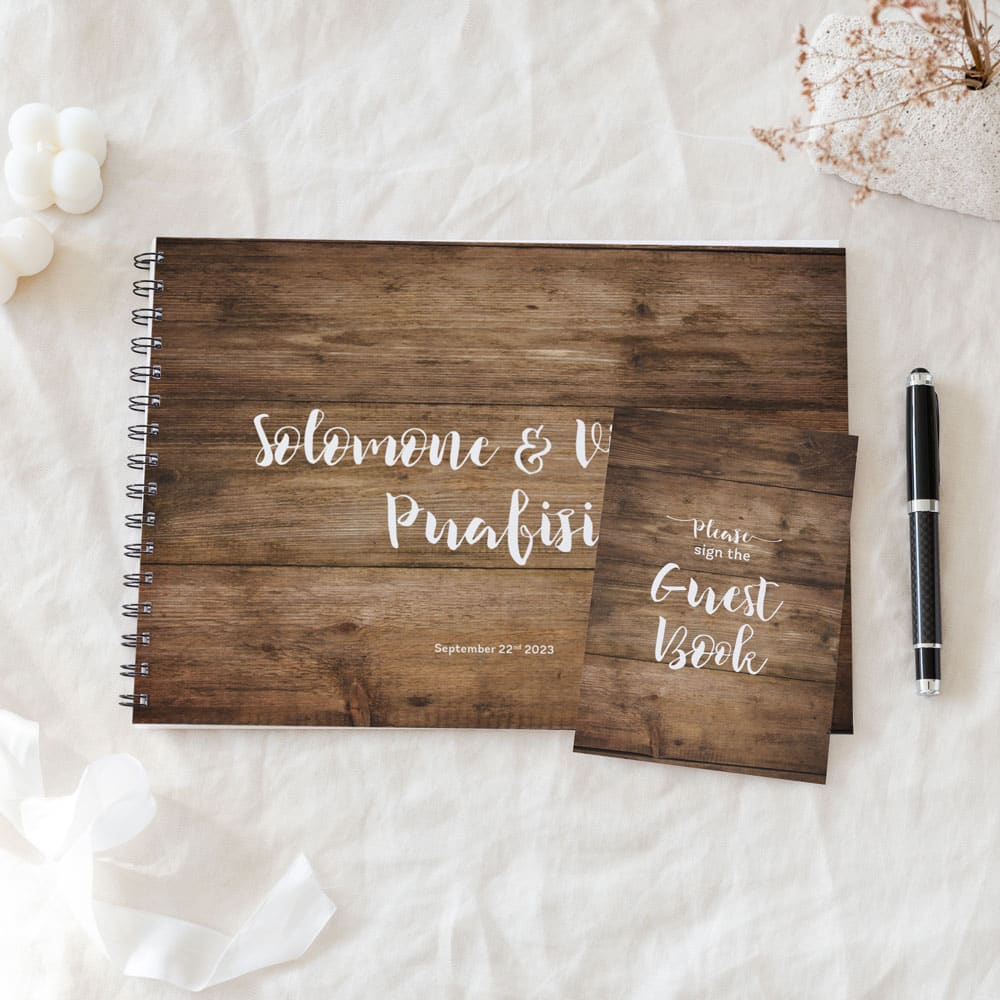 Solomone & V
Puafisi
September 22nd 2023
Please
sign the
Guest
Book